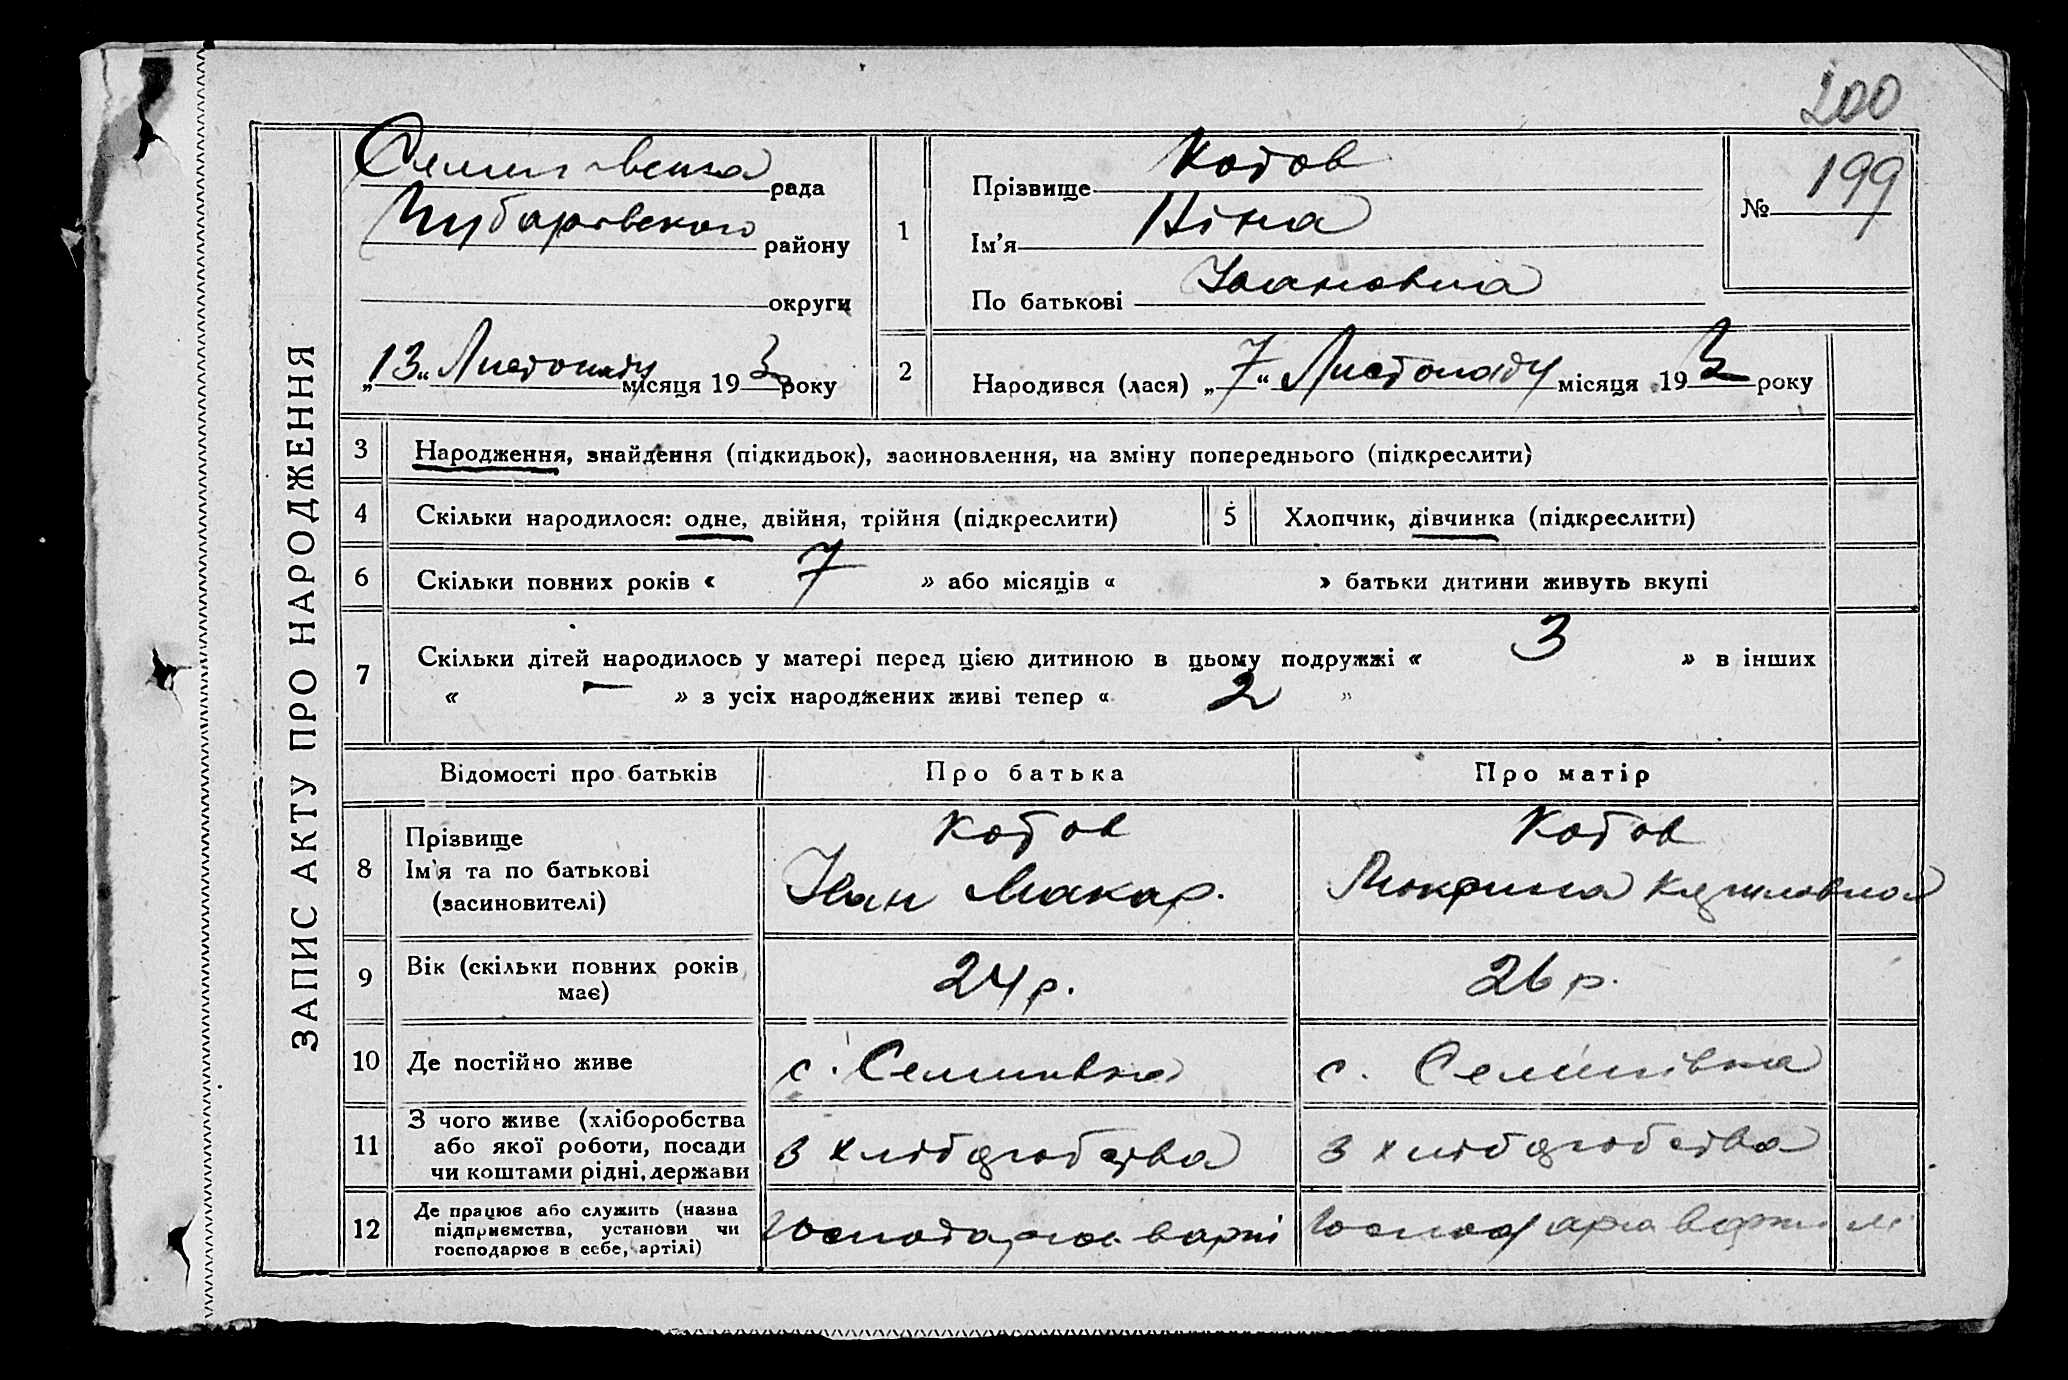 200
ЗАПИС АКТУ ПРО НАРОДЖЕННЯ
рада
Чубарівського району
округи
„13“ Листопаду місяця 193 року
1 Прізвище Котов
Ім’я Ніна
По батькові Івановна
№ 199
2 Народився (лася) „7“ Листопаду місяця 193 року
3 Народження, знайдення (підкидьок), засиновлення, на зміну попереднього (підкреслити)
4 Скільки народилося: одне, двійня, трійня (підкреслити)
5 Хлопчик, дівчинка (підкреслити)
6 Скільки повних років « 7 » або місяців « » батьки дитини живуть вкупі
7 Скільки дітей народилось у матері перед цією дитиною в цьому подружжі « 3 » в інших
« — » з усіх народжених живі тепер « 2 »
Відомості про батьків
Про батька
Про матір
8 Прізвище
Ім’я та по батькові
(засиновителі)
Котов
Іван Макар.
Котов
Мокрина
9 Вік (скільки повних років
має)
24 р.
26 р.
10 Де постійно живе
с. Семинівка
с. Семинівка
11 З чого живе (хліборобства
або якої роботи, посади
чи коштами рідні, держави
з хліборобства
з хліборобства
12 Де працює або служить (назва
підприємства, установи чи
господарює в себе, артілі)